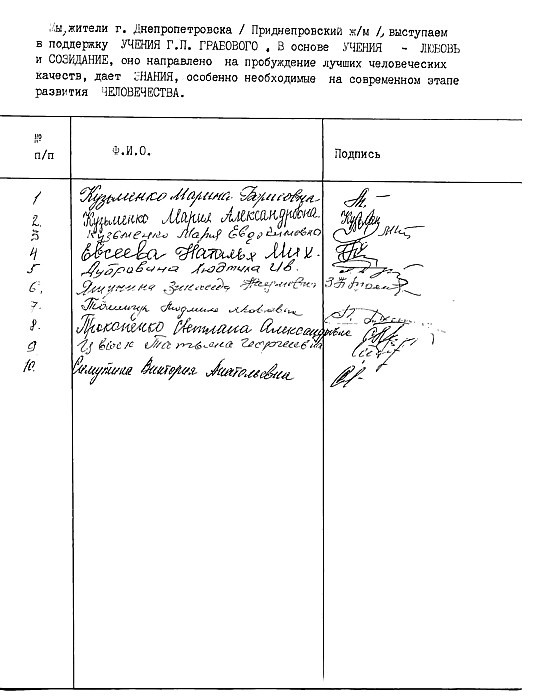 Мы,жители г. Днепропетровска / Приднепровский ж/м /, выступаем
в поддержку УЧЕНИЯ Г.П. ГРАБОВОГО . В основе УЧЕНИЯ - ЛЮБОВЬ
и СОЗИДАНИЕ, оно направлено на пробуждение лучших человеческих
качеств, дает ЗНАНИЯ, особенно необходимые на современном этапе
развития ЧЕЛОВЕЧЕСТВА.
№ п/п Ф.И.О. Подпись
1 Кузьменко Марина Борисовна
2. Кузьменко Мария Александровна
3 Кузьменко Мария Евдокимовна
4 Евсеева Наталья Мих.
5 Дубровина Людмила Ив.
6.
7. Людмила Яковлевна
8. Прокопенко Светлана Александровна
9 Татьяна Георгиевна
10. Симутина Виктория Анатольевна